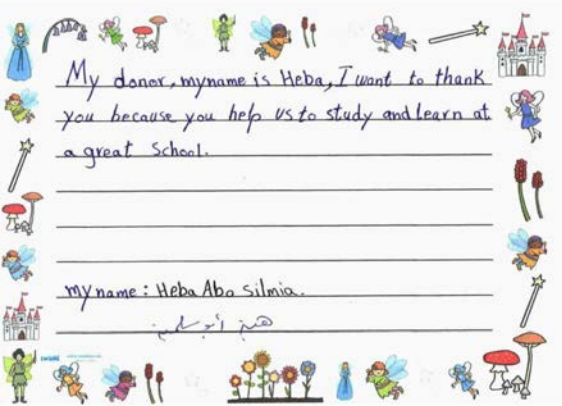 My donor, myname is Heba, I want to thank
you because you help us to study and learn at
a great School.
myname : Heba Abo Silmia.
هبة أبو سلمية